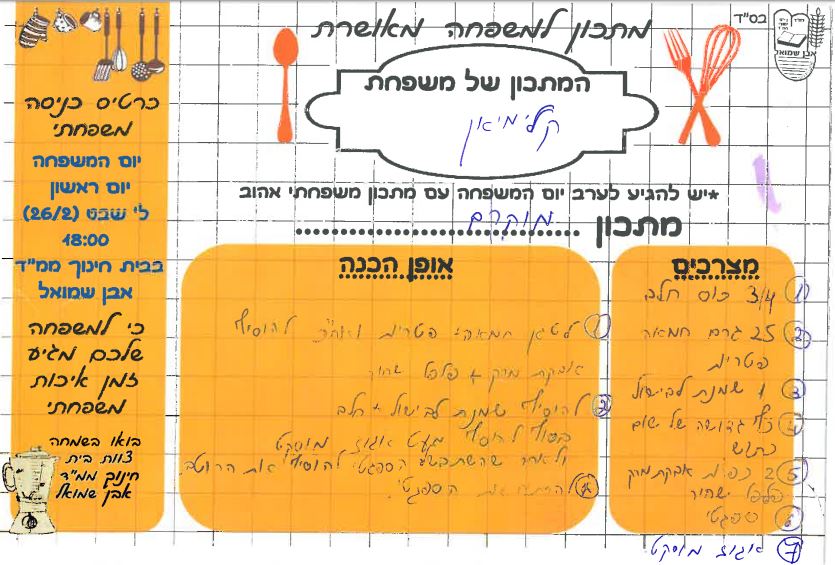 בס"ד
אבן שמואל
מתכון למשפחה מאושרת
המתכון של משפחת
קלימיאן
*יש להגיע לערב יום המשפחה עם מתכון משפחתי אהוב
מתכון מוקרם
מצרכים
1) 3/4 כוס חלב
2) 25 גרם חמאה
פטריות
3) 1 שמנת לבישול
4) כף גדושה של שום
כתוש
5) 2 כפיות אבקת מרק
פלפל שחור
6) ספגטי
7) אגוז מוסקט
אופן הכנה
1) לטגן חמאה + פטריות ואח"כ להוסיף
אבקת מרק + פלפל שחור
2) להוסיף שמנת לבישול + חלב
בסוף להוסיף מעט אגוז מוסקט
ולאחר שהתבשל הספגטי להוסיף את הרוטב
להרתיח את הספגטי
כרטיס כניסה
משפחתי
יום המשפחה
יום ראשון
ל' שבט (26/2)
18:00
בבית חינוך ממ"ד
אבן שמואל
כי למשפחה
שלכם מגיע
זמן איכות
משפחתי
בואו בשמחה
צוות בית
חינוך ממ"ד
אבן שמואל